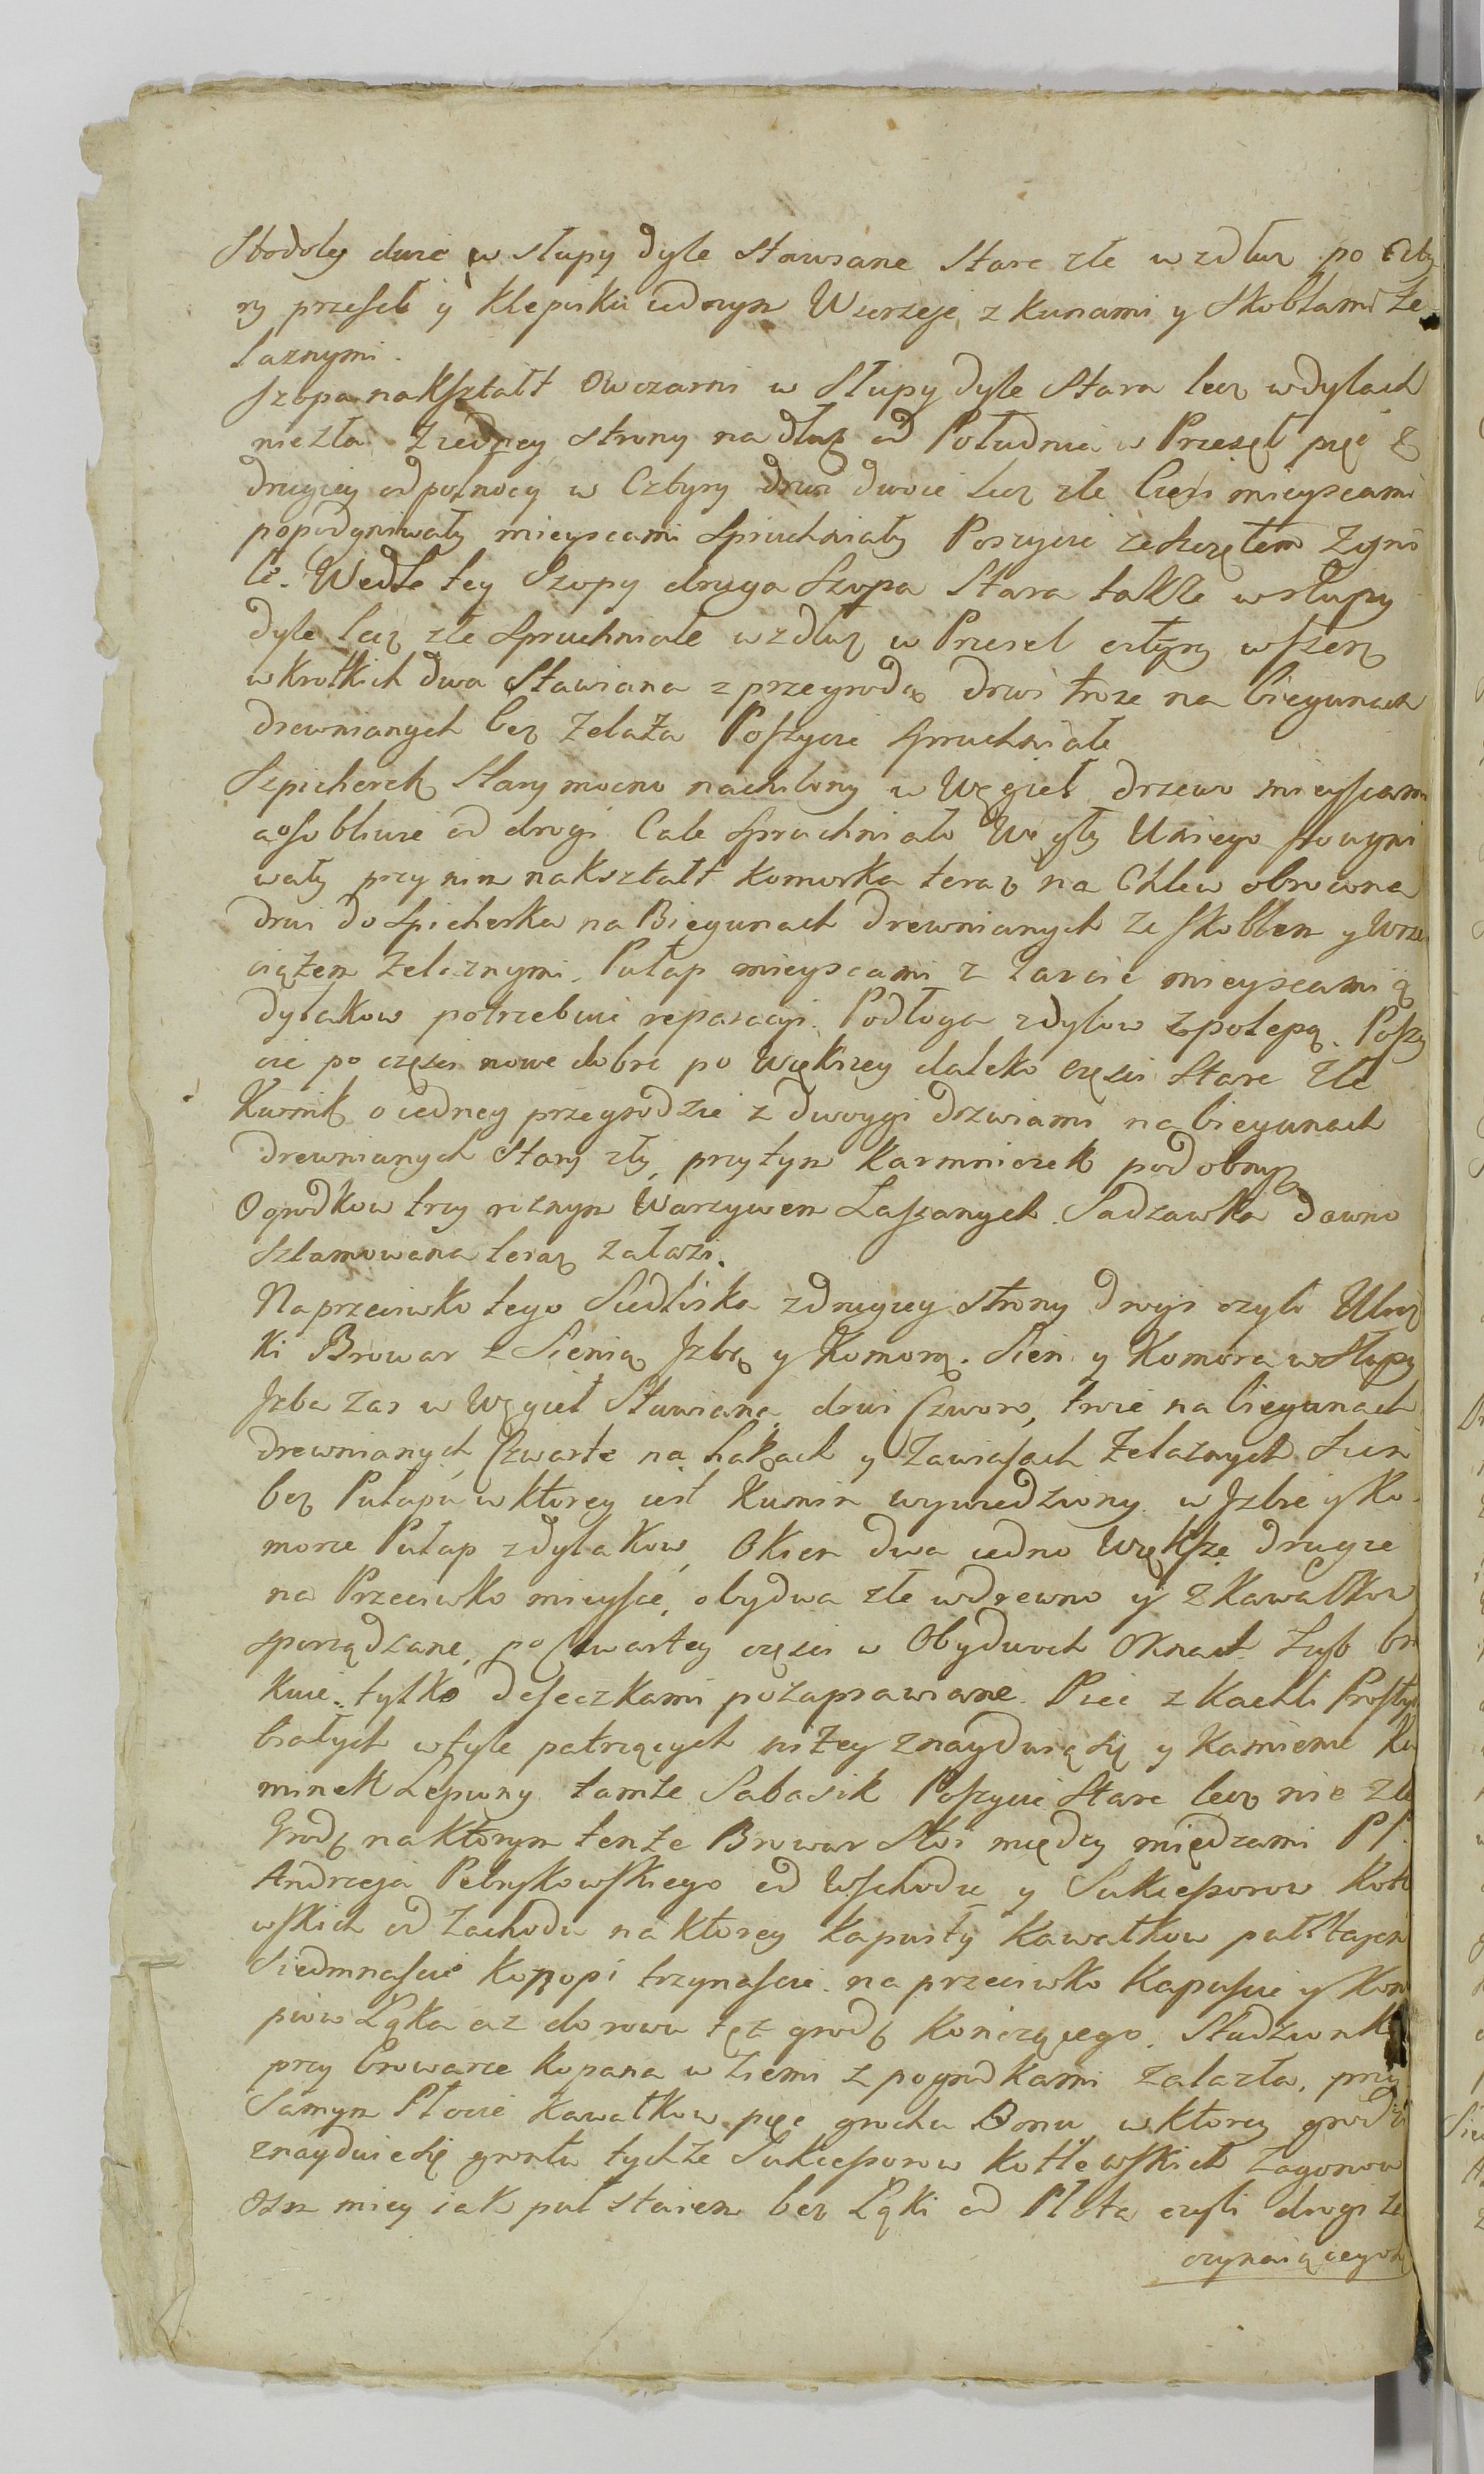 Stodoły dwie w słupy dyle stawiane stare złe wzdłuż po czty
ry przeseł y klepisku iednym Wierzeje z kunami y skoblami że
laznymi.
Szopa nakształt Owczarni w Słupy dyle Stara lecz wdylach
niezła z iedney strony na dłuż od Południa w Przeseł pięć z
drugiey od połnocy w Cztyry drwi dwoie lecz złe Części mieyscami
popodgniwały mieyscami spruchniały Poszycie ze szczętem zgni
łe. Wedle tey Szopy druga Szopa Stara także wsłupy
dyle lecz złe spruchniałe wzdłuż w Przeseł cztyry wszerz
wkrotkich dwa Stawiana z przegrodą drwi troie na biegunach
drewnianych bez żelaza Poszycie spruchniałe
Szpicherek Stary mocno nachilony w Węgieł drzewo mieyscami
aosobliwie od drogi Całe spruchniało Węgły Uniego powygni
wały przy nim nakształt komorka teraz na Chlew obrocona
drwi do spicherka na Biegunach drewnianych ze skoblem y Wrze
ciążem żelaznymi. Pułap mieyscami z tarcic mieyscami z
dylakow potrzebuie reparacyi. Podłoga zdylow z polepą. Poszy
cie po części nowe dobre po Większey daleko części Stare złe
Kurnik o iedney przegrodzie z dwoygi drzwiami na biegunach
drewnianych Stary zły, przytym karmniczek podobnyż
Ogrodkow trzy roznym Warzywem Zasianych. Sadzawka dawno
szlamowana teraz załazi.
Naprzeciwko tego Siedliska zdrugiey strony drogi czyli Ulicz
ki Browar z Sienią Izbą y Komorą. Sien y Komora w Słupy
Izba zas w Węgieł Stawiana drwi Czworo, troie na biegunach
drewnianych Czwarte na hakach y Zawiasach żelaznych Sien
bez Pułapu w ktorey iest Kumin wywiedziony. w Izbie y Ko
morze Pułap zdylakow, Okien dwa iedno Większe drugie
na Przeciwko mieysce, obydwa złe wdrewno y z kawałkow
sporządzane, po Czwartey części w Obydwoch Oknach Szyb bra
kuie. tylko deseczkami pozaprawiane. Piec z kachli Prostych
białych wtyle patrzących niżey znayduią się y kamienie Ku
minek Lepiony tamże Sabasik Poszycie Stare lecz nie złe
Grodź na ktorym tenże Browar Stoi między miedzami PP.
Andrzeja Pełrykowskiego od Wschodu y Sukcessorow Kotle
wskich od Zachodu na ktorey kapusty kawałkow pułstajen
Siedmnaście konopi trzynaście. na przeciwko kapuście y Kono
piow Łąka az do rowu też grodź kończącego. Studzionka
przy browarze kopana w ziemi z pogrodkami zalazła, przy
Samym Płocie kawałkow pięc grochu Bonu w ktorey grodzi
znayduie się gruntu tychże Sukcessorow Kotlewskich zagonow
osm miey iak puł staien bez Łąki od Płota czyli drogi za
czynaiącego